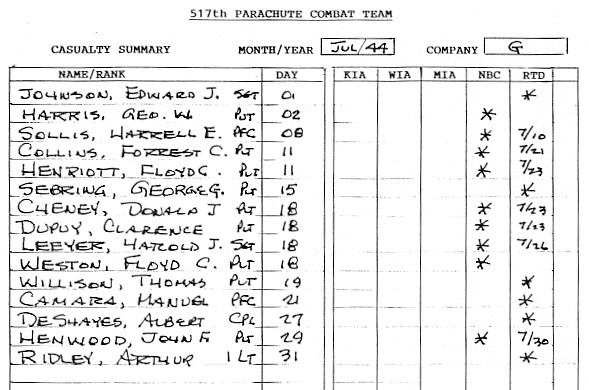 517th PARACHUTE COMBAT TEAM
CASUALTY SUMMARY MONTH/YEAR JUL/44 COMPANY G
NAME/RANK DAY KIA WIA MIA NBC RTD
JOHNSON, EDWARD J. SGT 01 *
HARRIS, GEO. W. PVT 02 *
SOLLIS, HARRELL E. PFC 08 * 7/10
COLLINS, FORREST C. PVT 11 * 7/21
HENRIOTT, FLOYD C. PVT 11 * 7/23
SEBRING, GEORGE G. PVT 15 *
CHENEY, DONALD J PVT 18 * 7/23
DUPUY, CLARENCE PVT 18 * 7/23
LEEYER, HAROLD J. SGT 18 * 7/26
WESTON, FLOYD C. PVT 18 *
WILLISON, THOMAS PVT 19 *
CAMARA, MANUEL PFC 21 *
DESHAYES, ALBERT CPL 27 *
HENWOOD, JOHN F PVT 29 * 7/30
RIDLEY, ARTHUR 1 LT 31 *